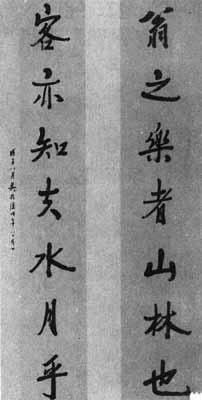 翁之樂者山林也
客亦知夫水月乎